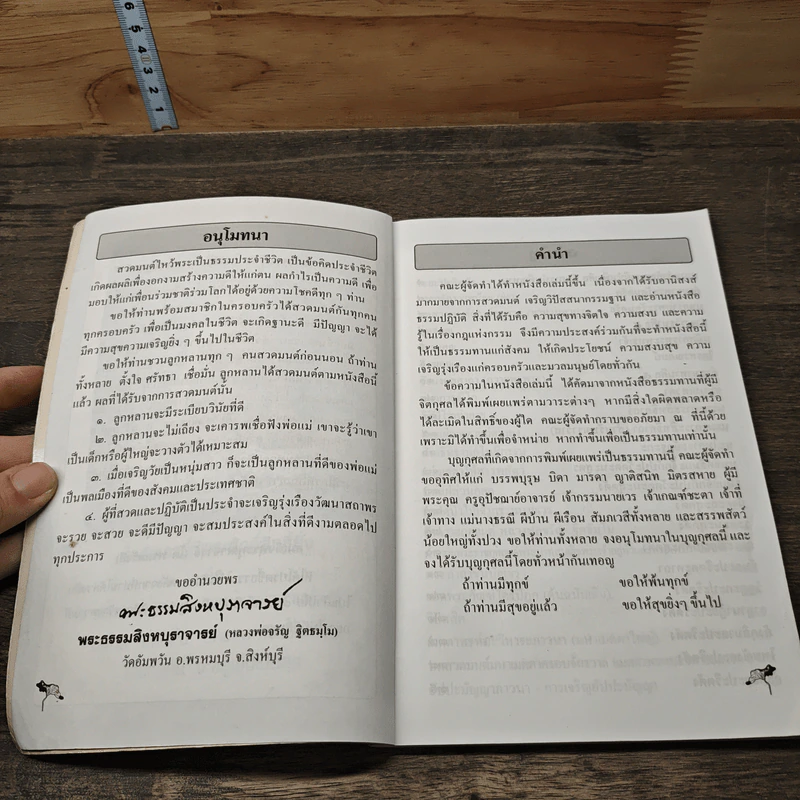 6 5 4 3 2 1
อนุโมทนา
สวดมนต์ไหว้พระเป็นธรรมประจำชีวิต เป็นข้อคิดประจำชีวิต
เกิดผลผลิเพื่องอกงามสร้างความดีให้แก่ตน ผลกำไรเป็นความดี เพื่อ
มอบให้แก่เพื่อนร่วมชาติร่วมโลกได้อยู่ด้วยความโชคดีทุก ๆ ท่าน
ขอให้ท่านพร้อมสมาชิกในครอบครัวได้สวดมนต์กันทุกคน
ทุกครอบครัว เพื่อเป็นมงคลในชีวิต จะเกิดฐานะดี มีปัญญา จะได้
มีความสุขความเจริญยิ่ง ๆ ขึ้นไปในชีวิต
ขอให้ท่านชวนลูกหลานทุก ๆ คนสวดมนต์ก่อนนอน ถ้าท่าน
ทั้งหลาย ตั้งใจ ศรัทธา เชื่อมั่น ลูกหลานได้สวดมนต์ตามหนังสือนี้
แล้ว ผลที่ได้รับจากการสวดมนต์นั้น
๑. ลูกหลานจะมีระเบียบวินัยที่ดี
๒. ลูกหลานจะไม่เถียง จะเคารพเชื่อฟังพ่อแม่ เขาจะรู้ว่าเขา
เป็นเด็กหรือผู้ใหญ่จะวางตัวได้เหมาะสม
๓. เมื่อเจริญวัยเป็นหนุ่มสาว ก็จะเป็นลูกหลานที่ดีของพ่อแม่
เป็นพลเมืองที่ดีของสังคมและประเทศชาติ
๔. ผู้ที่สวดและปฏิบัติเป็นประจำจะเจริญรุ่งเรืองวัฒนาสถาพร
จะรวย จะสวย จะดีมีปัญญา จะสมประสงค์ในสิ่งที่ดีงามตลอดไป
ทุกประการ
ขออำนวยพร
พระธรรมสิงหบุราจารย์
พระธรรมสิงหบุราจารย์ (หลวงพ่อจรัญ ฐิตธมฺโม)
วัดอัมพวัน อ.พรหมบุรี จ.สิงห์บุรี
คำนำ
คณะผู้จัดทำได้ทำหนังสือเล่มนี้ขึ้น เนื่องจากได้รับอานิสงส์
มากมายจากการสวดมนต์ เจริญวิปัสสนากรรมฐาน และอ่านหนังสือ
ธรรมปฏิบัติ สิ่งที่ได้รับคือ ความสุขทางจิตใจ ความสงบ และความ
รู้ในเรื่องกฎแห่งกรรม จึงมีความประสงค์ร่วมกันที่จะทำหนังสือนี้
ให้เป็นธรรมทานแก่สังคม ให้เกิดประโยชน์ ความสงบสุข ความ
เจริญรุ่งเรืองแก่ครอบครัวและมวลมนุษย์โดยทั่วกัน
ข้อความในหนังสือเล่มนี้ ได้คัดมาจากหนังสือธรรมทานที่ผู้มี
จิตกุศลได้พิมพ์เผยแพร่ตามวาระต่างๆ หากมีสิ่งใดผิดพลาดหรือ
ได้ละเมิดในสิทธิ์ของผู้ใด คณะผู้จัดทำกราบขออภัยมา ณ ที่นี้ด้วย
เพราะมิได้ทำขึ้นเพื่อจำหน่าย หากทำขึ้นเพื่อเป็นธรรมทานเท่านั้น
บุญกุศลที่เกิดจากการพิมพ์เผยแพร่เป็นธรรมทานนี้ คณะผู้จัดทำ
ขออุทิศให้แก่ บรรพบุรุษ บิดา มารดา ญาติสนิท มิตรสหาย ผู้มี
พระคุณ ครูอุปัชฌาย์อาจารย์ เจ้ากรรมนายเวร เจ้าเกณฑ์ชะตา เจ้าที่
เจ้าทาง แม่นางธรณี ผีบ้าน ผีเรือน สัมภเวสีทั้งหลาย และสรรพสัตว์
น้อยใหญ่ทั้งปวง ขอให้ท่านทั้งหลาย จงอนุโมทนาในบุญกุศลนี้ และ
จงได้รับบุญกุศลนี้โดยทั่วหน้ากันเทอญ
ถ้าท่านมีทุกข์ ขอให้พ้นทุกข์
ถ้าท่านมีสุขอยู่แล้ว ขอให้สุขยิ่งๆ ขึ้นไป